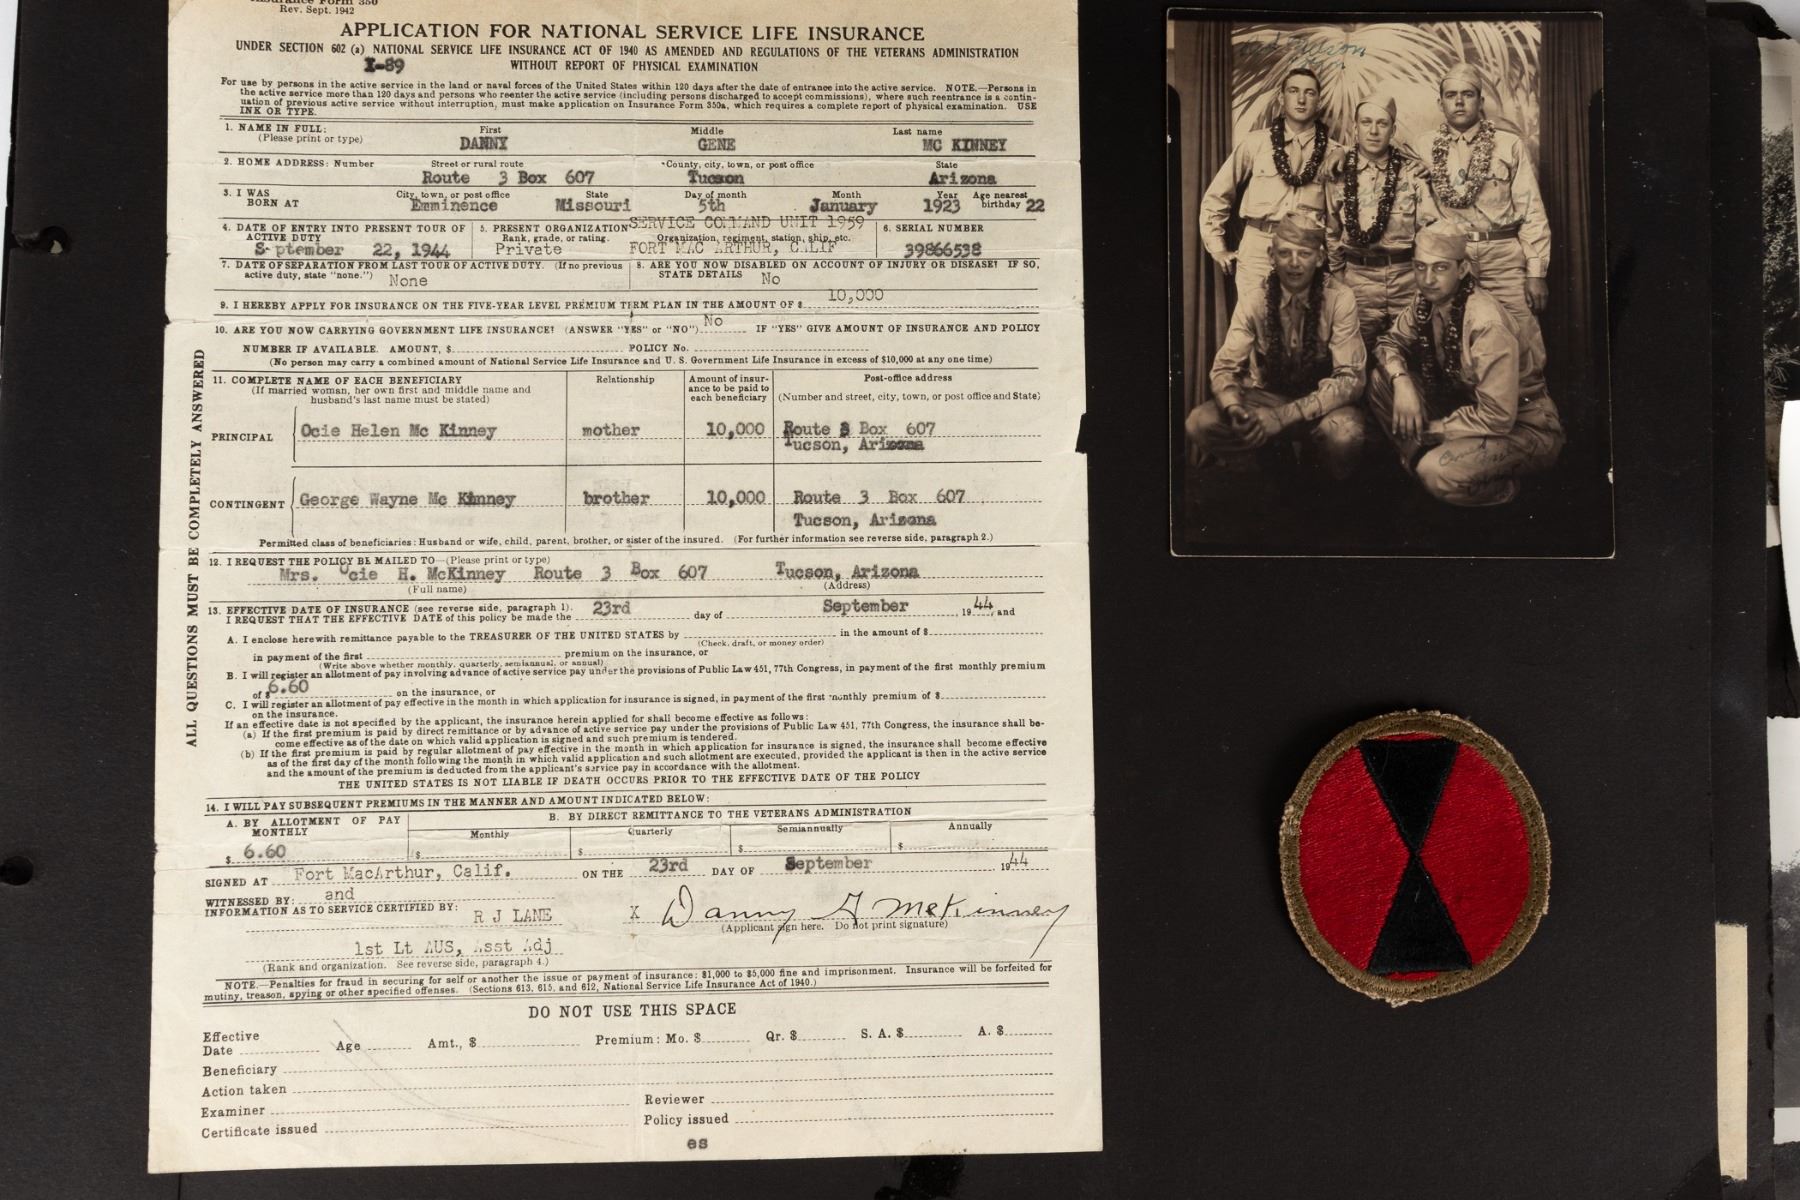 Insurance Form 350
Rev. Sept. 1942
APPLICATION FOR NATIONAL SERVICE LIFE INSURANCE
UNDER SECTION 602 (a) NATIONAL SERVICE LIFE INSURANCE ACT OF 1940 AS AMENDED AND REGULATIONS OF THE VETERANS ADMINISTRATION
I-89 WITHOUT REPORT OF PHYSICAL EXAMINATION
For use by persons in the active service in the land or naval forces of the United States within 120 days after the date of entrance into the active service. NOTE.—Persons in
the active service more than 120 days and persons who reenter the active service (including persons discharged to accept commissions), where such reentrance is a contin-
uation of previous active service without interruption, must make application on Insurance Form 350a, which requires a complete report of physical examination. USE
INK OR TYPE.
1. NAME IN FULL: First Middle Last name
(Please print or type) DANNY GENE MC KINNEY
2. HOME ADDRESS: Number Street or rural route County, city, town, or post office State
Route 3 Box 607 Tucson Arizona
3. I WAS BORN AT City, town, or post office State Day of month Month Year Age nearest birthday
Eminence Missouri 5th January 1923 22
4. DATE OF ENTRY INTO PRESENT TOUR OF ACTIVE DUTY
September 22, 1944
5. PRESENT ORGANIZATION SERVICE COMMAND UNIT 1959
Rank, grade, or rating. Organization, regiment, station, ship, etc.
Private FORT MAC ARTHUR, CALIF
6. SERIAL NUMBER
39866538
7. DATE OF SEPARATION FROM LAST TOUR OF ACTIVE DUTY. (If no previous
active duty, state "none.") None
8. ARE YOU NOW DISABLED ON ACCOUNT OF INJURY OR DISEASE? IF SO,
STATE DETAILS No
9. I HEREBY APPLY FOR INSURANCE ON THE FIVE-YEAR LEVEL PREMIUM TERM PLAN IN THE AMOUNT OF $ 10,000
10. ARE YOU NOW CARRYING GOVERNMENT LIFE INSURANCE? (ANSWER "YES" or "NO") No IF "YES" GIVE AMOUNT OF INSURANCE AND POLICY
NUMBER IF AVAILABLE. AMOUNT, $ POLICY No.
(No person may carry a combined amount of National Service Life Insurance and U. S. Government Life Insurance in excess of $10,000 at any one time)
11. COMPLETE NAME OF EACH BENEFICIARY Relationship Amount of insur- Post-office address
(If married woman, her own first and middle name and ance to be paid to
husband's last name must be stated) each beneficiary (Number and street, city, town, or post office and State)
PRINCIPAL Ocie Helen Mc Kinney mother 10,000 Route 3 Box 607
Tucson, Arizona
CONTINGENT George Wayne Mc Kinney brother 10,000 Route 3 Box 607
Tucson, Arizona
Permitted class of beneficiaries: Husband or wife, child, parent, brother, or sister of the insured. (For further information see reverse side, paragraph 2.)
12. I REQUEST THE POLICY BE MAILED TO—(Please print or type)
Mrs. Ocie H. McKinney Route 3 Box 607 Tucson, Arizona
(Full name) (Address)
13. EFFECTIVE DATE OF INSURANCE (see reverse side, paragraph 1).
I REQUEST THAT THE EFFECTIVE DATE of this policy be made the 23rd day of September 1944, and
A. I enclose herewith remittance payable to the TREASURER OF THE UNITED STATES by in the amount of $
(Check, draft, or money order)
in payment of the first premium on the insurance, or
(Write above whether monthly, quarterly, semiannual, or annual)
B. I will register an allotment of pay involving advance of active service pay under the provisions of Public Law 451, 77th Congress, in payment of the first monthly premium
of $6.60 on the insurance, or
C. I will register an allotment of pay effective in the month in which application for insurance is signed, in payment of the first monthly premium of $
on the insurance.
If an effective date is not specified by the applicant, the insurance herein applied for shall become effective as follows:
(a) If the first premium is paid by direct remittance or by advance of active service pay under the provisions of Public Law 451, 77th Congress, the insurance shall be-
come effective as of the date on which valid application is signed and such premium is tendered.
(b) If the first premium is paid by regular allotment of pay effective in the month in which application for insurance is signed, the insurance shall become effective
as of the first day of the month following the month in which valid application and such allotment are executed, provided the applicant is then in the active service
and the amount of the premium is deducted from the applicant's service pay in accordance with the allotment.
THE UNITED STATES IS NOT LIABLE IF DEATH OCCURS PRIOR TO THE EFFECTIVE DATE OF THE POLICY
14. I WILL PAY SUBSEQUENT PREMIUMS IN THE MANNER AND AMOUNT INDICATED BELOW:
A. BY ALLOTMENT OF PAY B. BY DIRECT REMITTANCE TO THE VETERANS ADMINISTRATION
MONTHLY Monthly Quarterly Semiannually Annually
$ 6.60 $ $ $ $
SIGNED AT Fort MacArthur, Calif. ON THE 23rd DAY OF September 1944
WITNESSED BY: and
INFORMATION AS TO SERVICE CERTIFIED BY:
R J LANE X Danny G McKinney
(Applicant sign here. Do not print signature)
1st Lt AUS, Asst Adj
(Rank and organization. See reverse side, paragraph 4.)
NOTE.—Penalties for fraud in securing for self or another the issue or payment of insurance: $1,000 to $5,000 fine and imprisonment. Insurance will be forfeited for
mutiny, treason, spying or other specified offenses. (Sections 613, 615, and 612, National Service Life Insurance Act of 1940.)
DO NOT USE THIS SPACE
Effective
Date Age Amt., $ Premium: Mo. $ Qr. $ S. A. $ A. $
Beneficiary
Action taken
Examiner Reviewer
Certificate issued Policy issued
es
ALL QUESTIONS MUST BE COMPLETELY ANSWERED